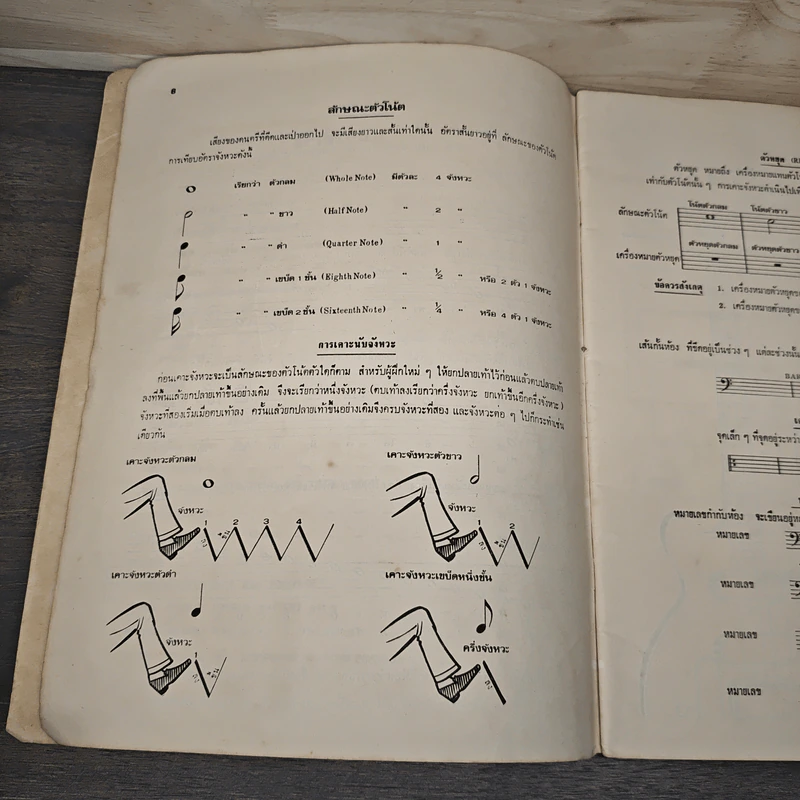 6
ลักษณะตัวโน้ต
เสียงของดนตรีที่ดีดและเป่าออกไป จะมีเสียงยาวและสั้นเท่าใดนั้น อัตราสั้นยาวอยู่ที่ ลักษณะของตัวโน้ต
การเทียบอัตราจังหวะดังนี้
เรียกว่า ตัวกลม (Whole Note) มีตัวละ 4 จังหวะ
" " ขาว (Half Note) " 2 "
" " ดำ (Quarter Note) " 1 "
" " เขบ็ต 1 ชั้น (Eighth Note) " ½ " หรือ 2 ตัว 1 จังหวะ
" " เขบ็ต 2 ชั้น (Sixteenth Note) " ¼ " หรือ 4 ตัว 1 จังหวะ
การเคาะนับจังหวะ
ก่อนเคาะจังหวะจะเป็นลักษณะของตัวโน้ตตัวใดก็ตาม สำหรับผู้ฝึกใหม่ ๆ ให้ยกปลายเท้าไว้ก่อนแล้วตบปลายเท้า
ลงที่พื้นแล้วยกปลายเท้าขึ้นอย่างเดิม จึงจะเรียกว่าหนึ่งจังหวะ (ตบเท้าลงเรียกว่าครึ่งจังหวะ ยกเท้าขึ้นอีกครึ่งจังหวะ)
จังหวะที่สองเริ่มเมื่อตบเท้าลง ครั้นแล้วยกปลายเท้าขึ้นอย่างเดิมจึงครบจังหวะที่สอง และจังหวะต่อ ๆ ไปก็กระทำเช่น
เดียวกัน
เคาะจังหวะตัวกลม
จังหวะ
1 2 3 4
ลง ขึ้น
เคาะจังหวะตัวขาว
จังหวะ
1 2
ลง ขึ้น
เคาะจังหวะตัวดำ
จังหวะ
1
ลง ขึ้น
เคาะจังหวะเขบ็ตหนึ่งชั้น
ครึ่งจังหวะ
ลง
ตัวหยุด
ตัวหยุด หมายถึง เครื่องหมายแทนตัวโ
เท่ากับตัวโน้ตนั้น ๆ การเคาะจังหวะดำเนินไปเ
โน้ตตัวกลม โน้ตตัวขาว
ลักษณะตัวโน้ต
ตัวหยุดตัวกลม ตัวหยุดตัวขาว
เครื่องหมายตัวหยุด
ข้อควรสังเกตุ 1. เครื่องหมายตัวหยุดข
2. เครื่องหมายตัวหยุดข
เส้นกั้นห้อง ที่ขีดอยู่เป็นช่วง ๆ แต่ละช่วงนั้น
BAR
จุดเล็ก ๆ ที่จุดอยู่ระหว่
หมายเลขกำกับห้อง จะเขียนอยู่ห
หมายเลข
หมายเลข
หมายเลข
หมายเลข